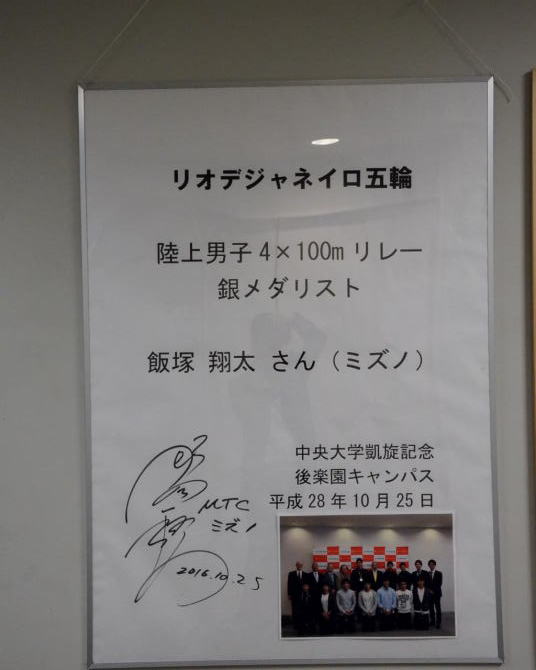 リオデジャネイロ五輪
陸上男子4×100mリレー
銀メダリスト
飯塚 翔太 さん（ミズノ）
中央大学凱旋記念
後楽園キャンパス
平成28年10月25日
MTC
ミズノ
2016.10.25